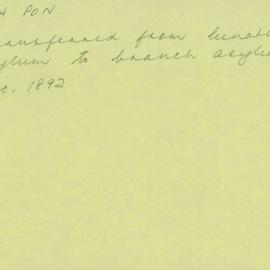 PON
ansferred from lunat
ylum to branch asylu
c. 1892